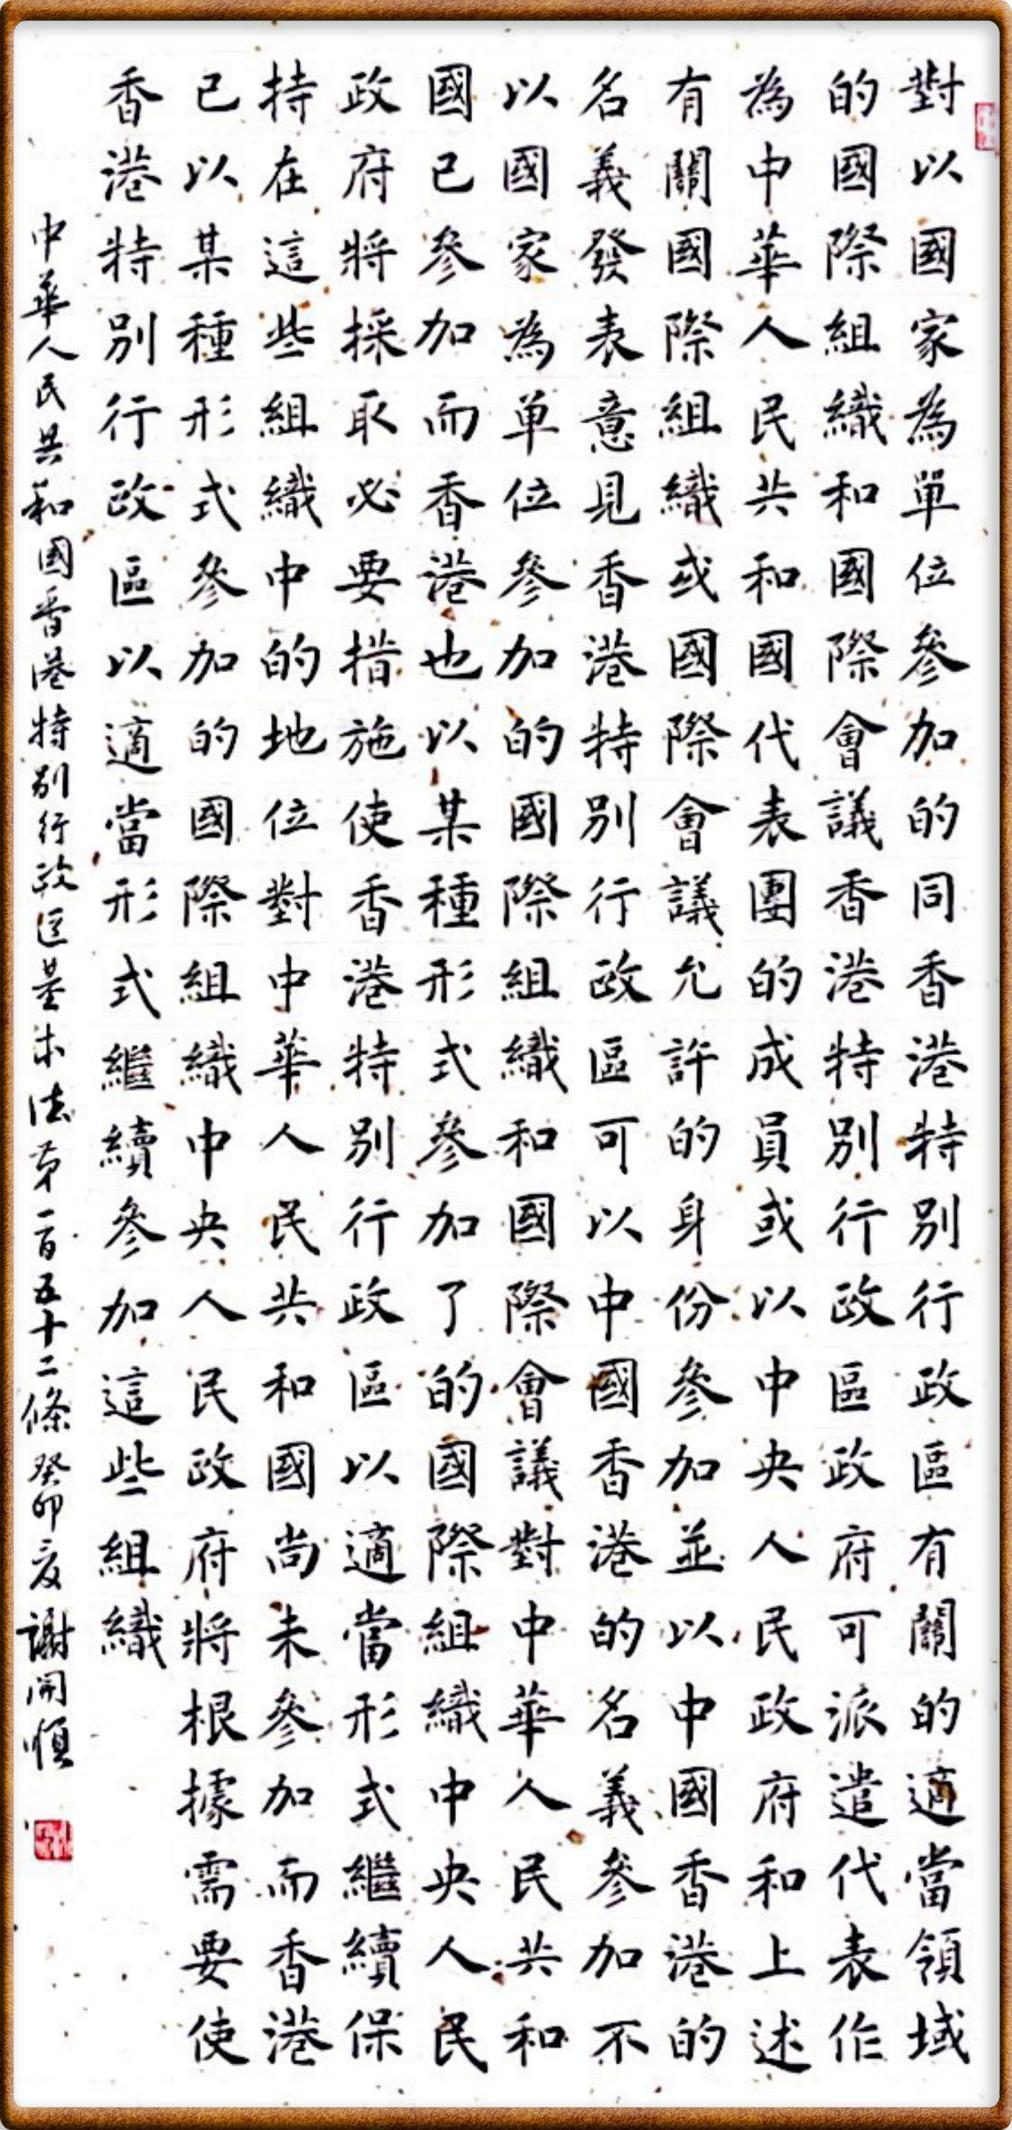 對以國家為單位參加的同香港特別行政區有關的適當領域
的國際組織和國際會議香港特別行政區政府可派遣代表作
為中華人民共和國代表團的成員或以中央人民政府和上述
有關國際組織或國際會議允許的身份參加並以中國香港的
名義發表意見香港特別行政區可以中國香港的名義參加不
以國家為单位參加的國際組織和國際會議對中華人民共和
國已參加而香港也以某種形式參加了的國際組織中央人民
政府將採取必要措施使香港特別行政區以適當形式繼續保
持在這些組織中的地位對中華人民共和國尚未參加而香港
已以某種形式參加的國際組織中央人民政府將根據需要使
香港特別行政區以適當形式繼續參加這些組織
中華人民共和國香港特別行政區基本法第一百五十二條癸卯夏謝開順